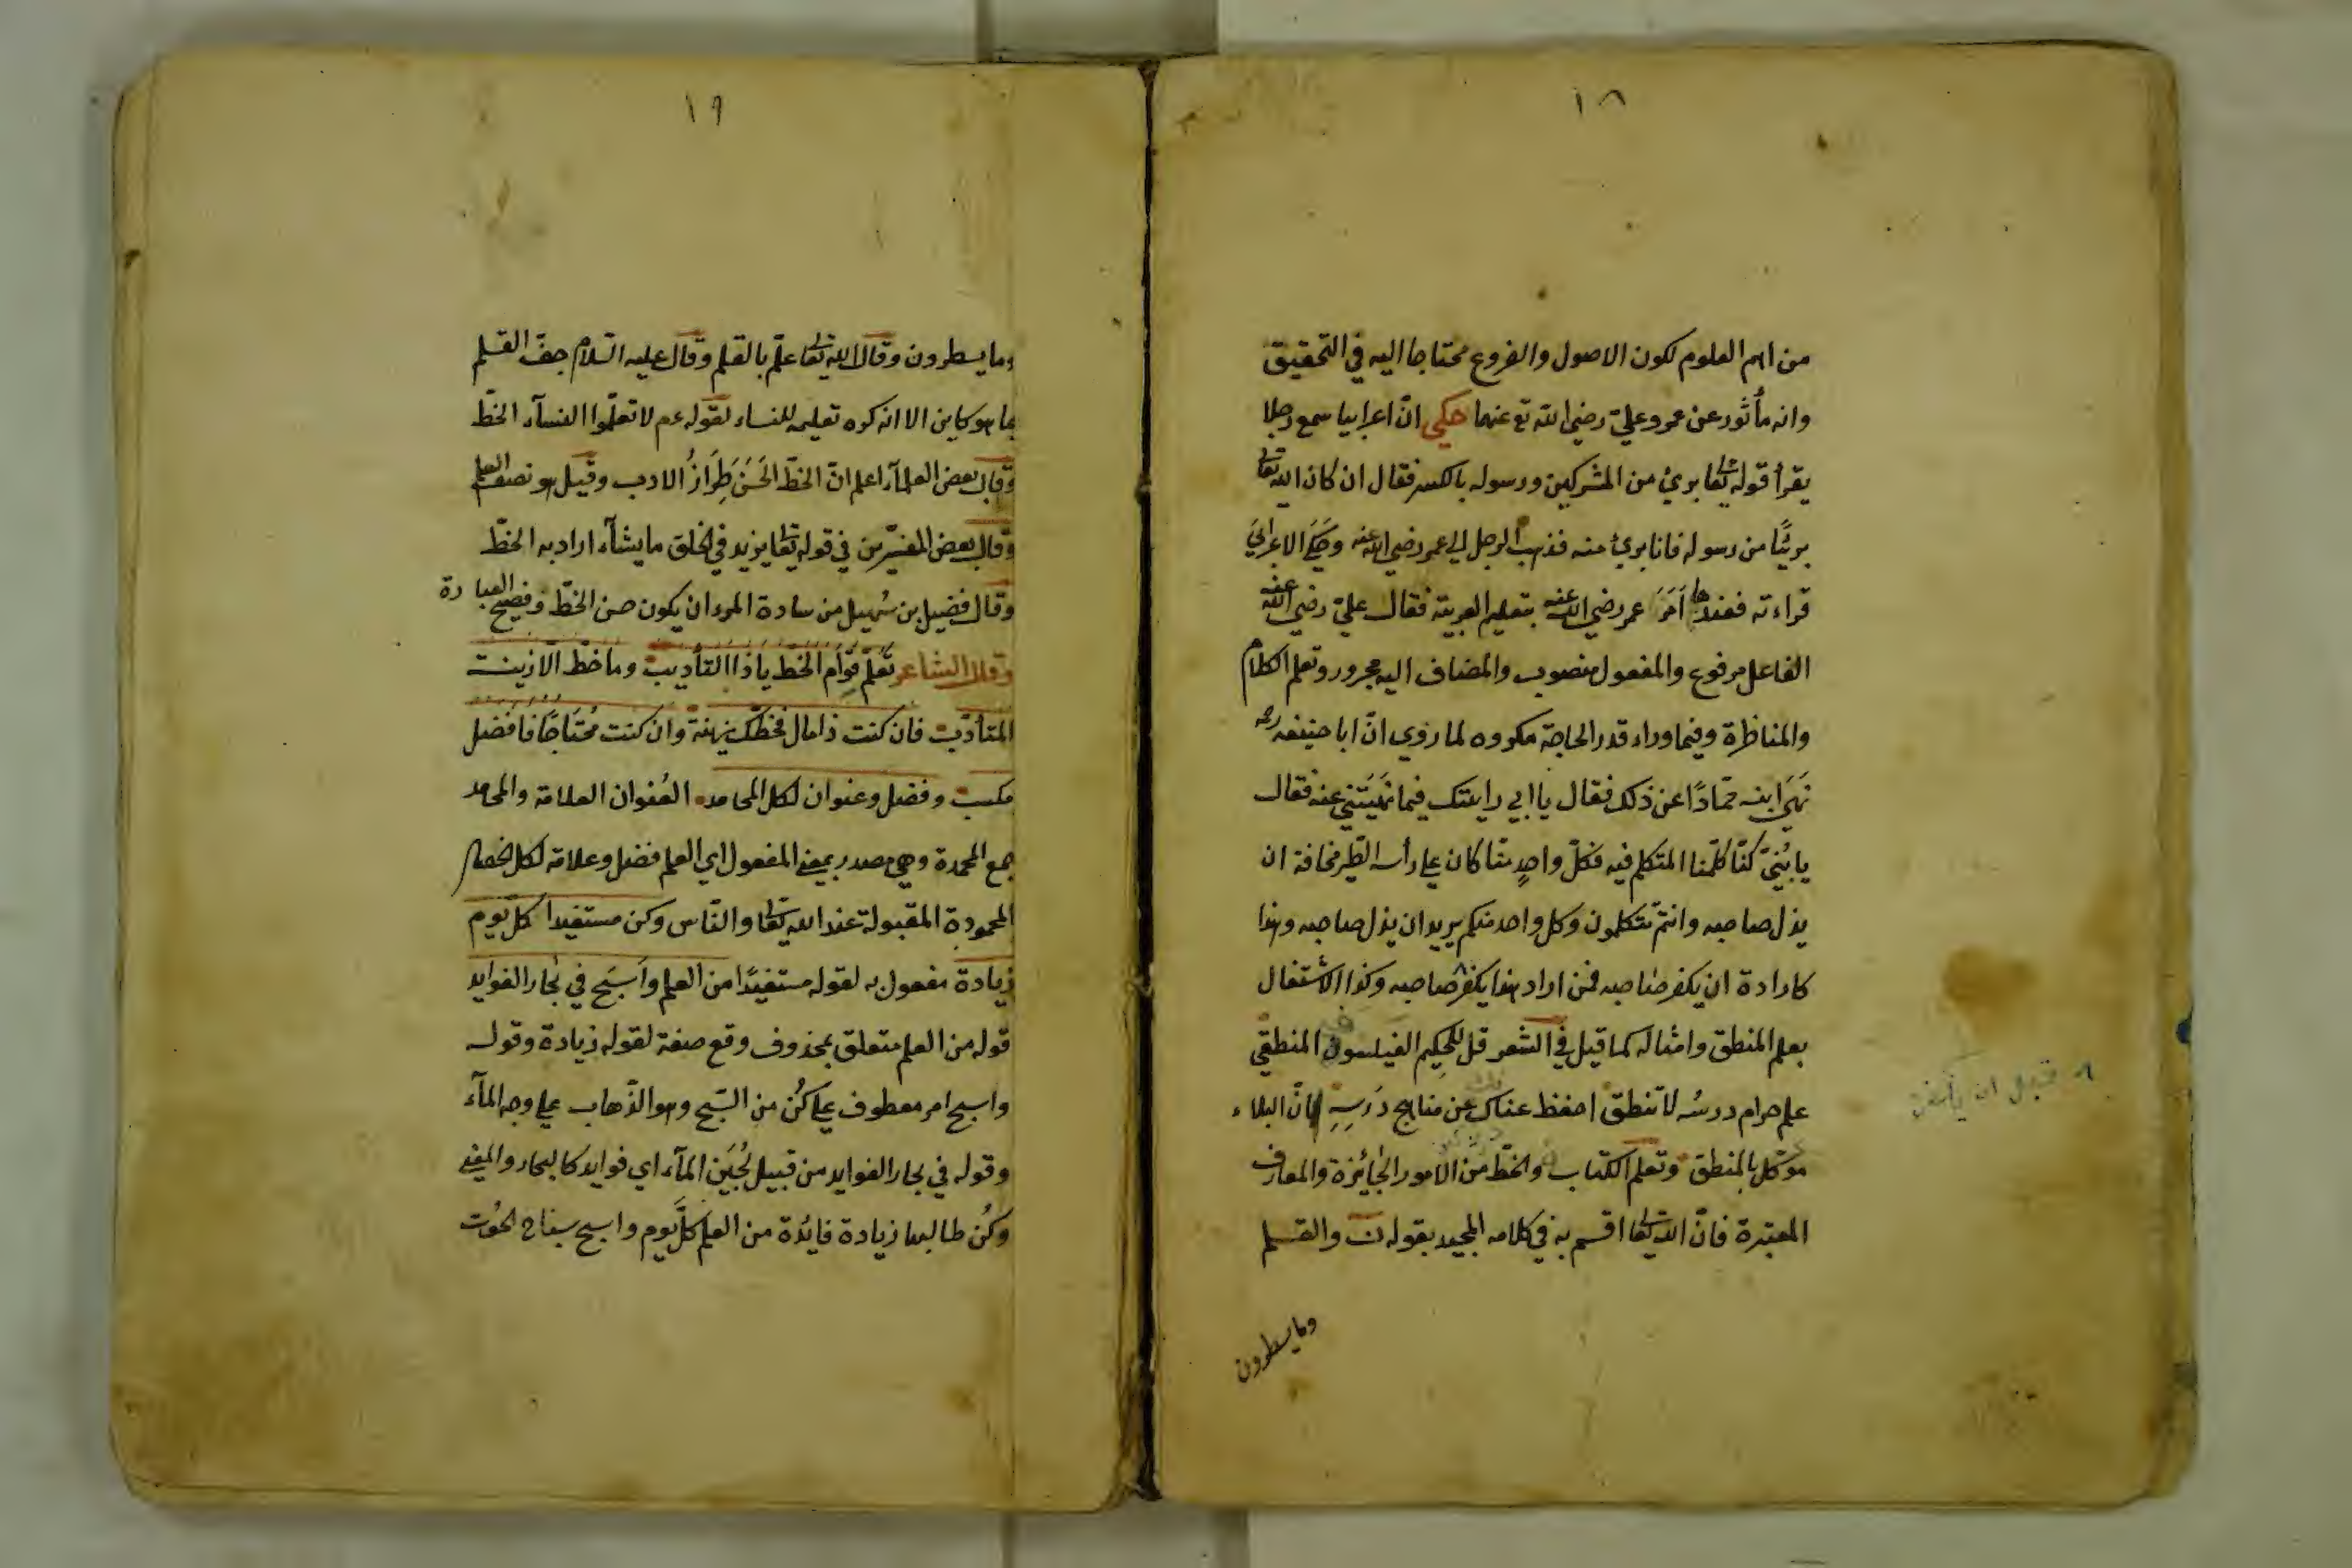 ١٨
من اهم العلوم لكون الاصول والفروع محتاجا اليه في التحقيق
وانه مأثور عن عمر وعليّ رضي الله تع عنهما حكي انّ اعرابيا سمع رجلا
يقرأ قوله تعا بريئ من المشركين ورسوله بالكسر فقال ان كان الله تعا
بريئًا من رسوله فانا بريئ منه فذهب الرجل الى عمر رضي الله عنه وحكي الاعرابيّ
قراءته فعندها اَمَرَ عمر رضي الله عنه بتعليم العربية فقال عليّ رضي الله عنه
الفاعل مرفوع والمفعول منصوب والمضاف اليه مجرور وتعلم الكلام
والمناظرة وفيما وراء قدر الحاجة مكروه لما روى انّ ابا حنيفه رحمه
نَهَى ابنه حمّادًا عن ذلك فقال يا ابي رايتك فيما نهيتني عنه فقال
يا بُنَيّ كنّا كلّمنا المتكلم فيه فكلّ واحدٍ منّا كان على رأسه الطّير مخافة ان
يذل صاحبه وانتم تتكلمون وكل واحد منكم يريد ان يذل صاحبه وهذا
كارادة ان يكفر صاحبه فمن اراد هذا يكفر صاحبه وكذا الاشتغال
بعلم المنطق وامثاله كما قيل في الشعر قل للحكيم الفيلسوف المنطقي
علم حرام درسُه لا تنطق احفظ عنانك عن مناهج دَرسِهِ انّ البلاء
موكّل بالمنطق وتعلم الكتاب والخطّ من الامور الجائزة والمعارف
المعتبرة فانّ الله تعا اقسم به في كلامه المجيد بقوله ن والقلم
وما يسطرون
قبل ان
١٩
وما يسطرون وقال الله تعا علّم بالقلم وقال عليه السّلام جفّ القلم
بما هو كاين الا انه كره تعليمه للنساء لقوله عم لا تعلّموا النسآء الخطّ
وقال بعض العلمآء اعلم انّ الخطّ الحَسَنَ طِرَازُ الادب وقيل هو نصف العلم
وقال بعض المفسّرين في قوله تعا يزيد في الخلق ما يشآء اراد به الخطّ
وقال فضيل بن سُهيل من سادة المرء ان يكون حسن الخطّ وفصيح العبارة
وقال الشاعر تعلّم قوام الخط يا ذا التأديب وما خطّ الّا زينت
المتأدّب فان كنت ذا مال فخطّك زينة وان كنت مُحتَاجًا فافضل
مكسب وفضل وعنوان لكل المحامد العُنوان العلامة والمحامد
جمع المحمدة وهي مصدر بمعنى المفعول اي العلم فضل وعلامة لكل الخصال
المحمودة المقبولة عند الله تعا والنّاس وكن مستفيدا كلّ يوم
زيادة مفعول به لقوله مستفيدًا من العلم واَسبَح في بحار الفوايد
قوله من العلم متعلق بمحذوف وقع صفة لقوله زيادة وقوله
واسبح امر معطوف على كُن من السّبح وهو الذّهاب على وجه المآء
وقوله في بحار الفوايد من قبيل لُجَين المآء اي فوايد كالبحار والمعنى
وكُن طالبها زيادة فائدة من العلم كلَّ يوم واسبح سباح الحُوت